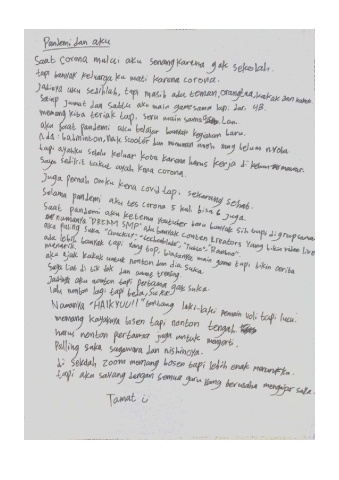 Pandemi dan aku
Saat corona mulai aku senang karena gak sekolah.
tapi banyak keluarga ku mati karena corona.
Jadinya aku sedih lah, tapi masih ada teman, orangtua, kakak dan
Setiap Jumat dan sabtu aku main game sama tapi dari
memang kita teriak tapi, seru main sama
aku saat pandemi aku belajar banyak kegiatan baru.
Ada: badminton, naik scooter dan makanan aneh yang belum
tapi ayahku selalu keluar kota karena harus kerja di
Saya sedikit takut ayah kena corona.
Juga pernah omku kena covid tapi sekarang sehat.
Selama pandemi aku tes corona 5 kali bisa 6 juga.
Saat pandemi aku ketemu youtuber baru banyak sih tapi di grup sama
numannya "DREAM SMP" ada banyak conten creators yang bikin video live
aku paling suka
ada lebih banyak tapi yang top, biasanya main game tapi bikin cerita
menarik.
aku ajak kakak untuk nonton dan dia suka.
Saya liat di tik tok dan anime trening.
Jadinya aku nonton tapi pertama gak suka.
lalu nonton lagi tapi beda, suka.
Namanya "HAIKYUU!!" tentang laki-laki pemain voli tapi lucu.
memang kayaknya bosen tapi nonton tengah
harus nonton pertama juga untuk mengerti.
Palling suka sugawara dan nishinoya.
di sekolah zoom memang bosen tapi lebih enak menurutku.
tapi aku sayang dengan semua guru yang berusaha mengajar saya.
Tamat :)